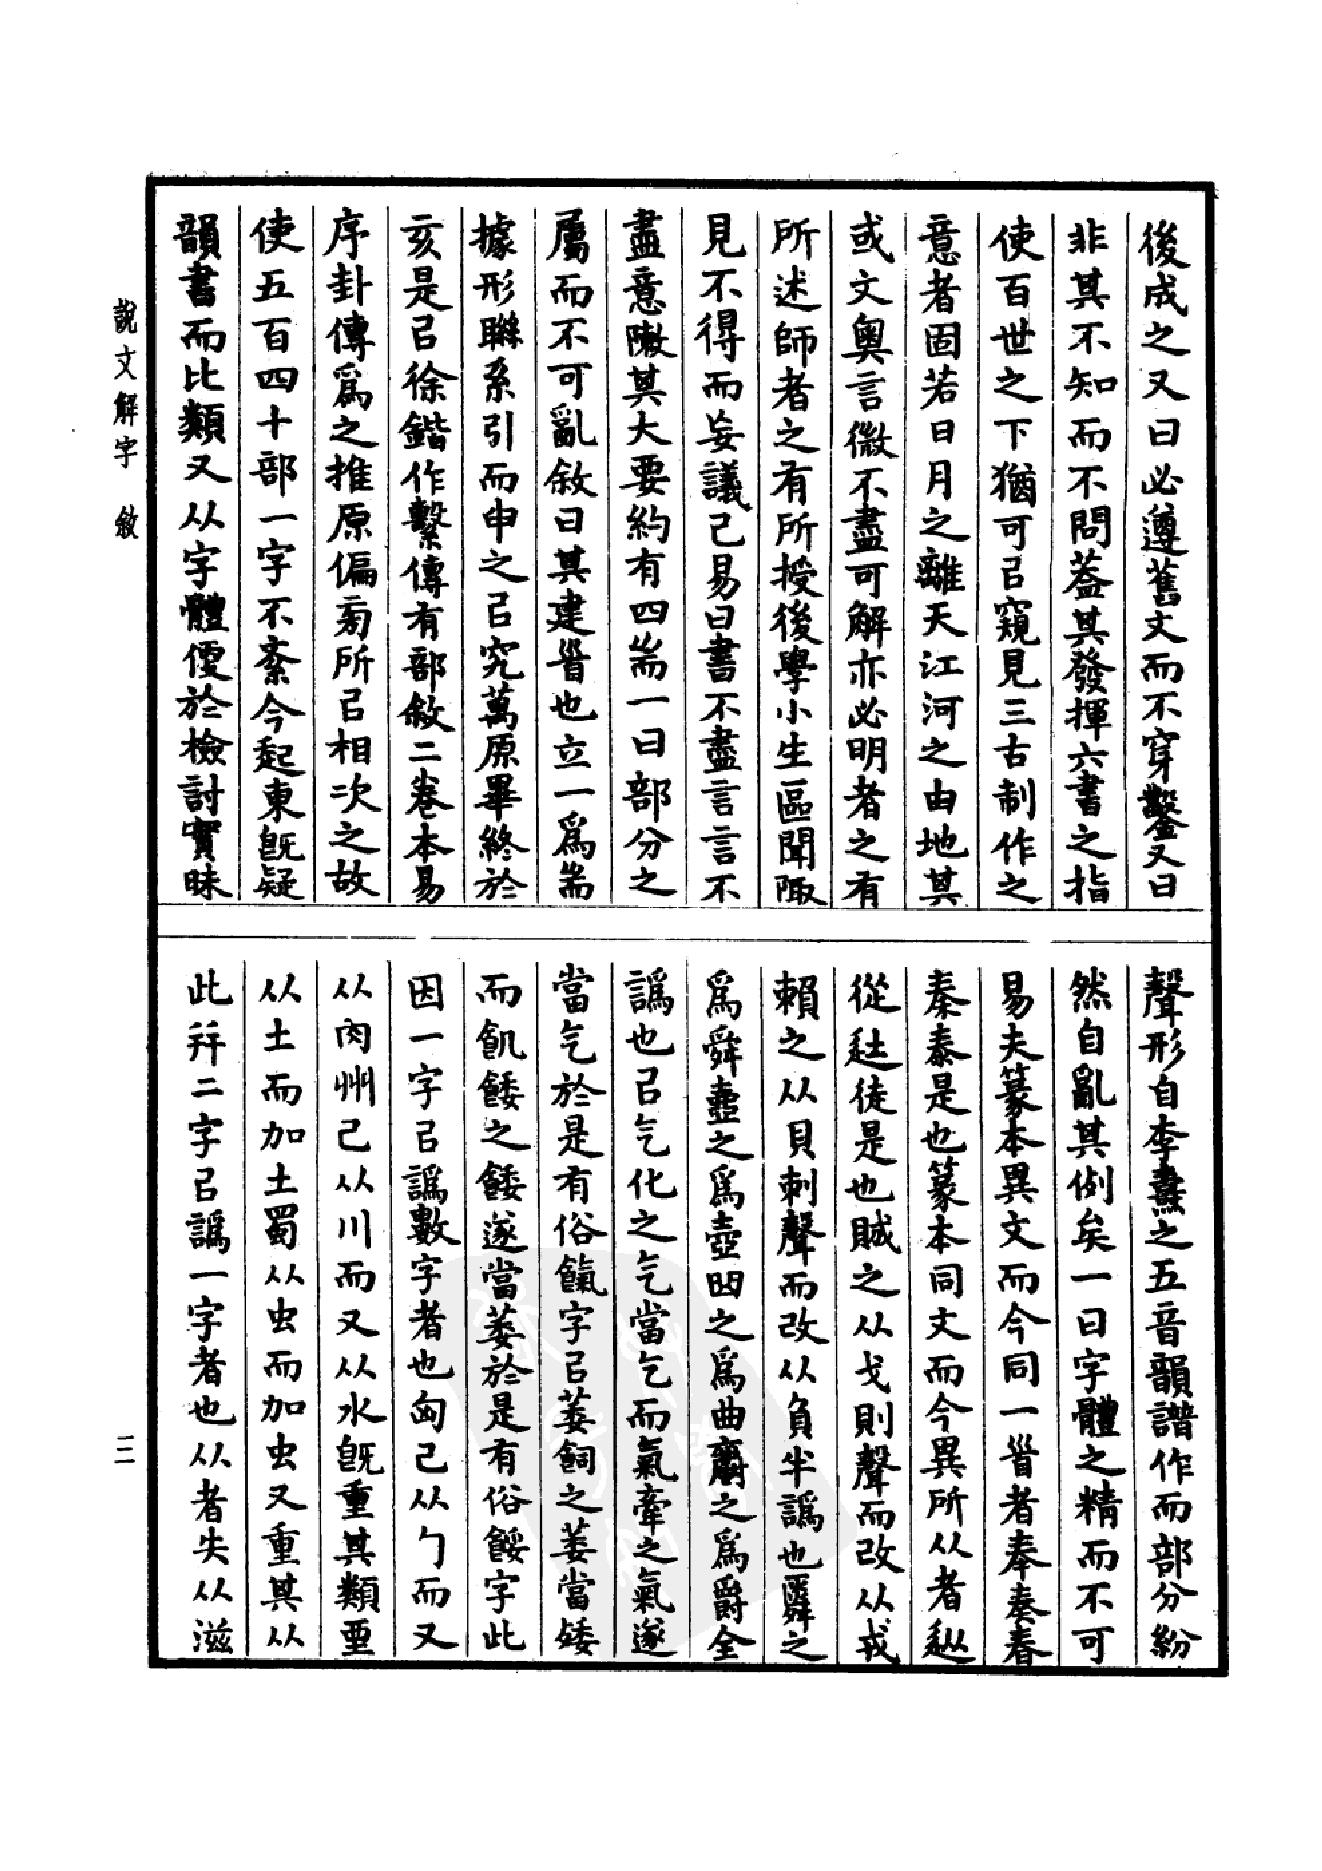 後成之又曰必遵舊文而不穿鑿又曰
非其不知而不問葢其發揮六書之指
使百世之下猶可㠯窺見三古制作之
意者固若日月之離天江河之由地其
或文奧言微不盡可解亦必明者之有
所述師者之有所授後學小生區聞陬
見不得而妄議已易曰書不盡言言不
盡意敶其大要約有四耑一曰部分之
屬而不可亂敘曰其建𩠐也立一爲耑
據形聮系引而申之㠯究萬原畢終於
亥是㠯徐鍇作繫傳有部敘二卷本易
序卦傳爲之推原偏㫄所㠯相次之故
使五百四十部一字不紊今起東旣疑
韻書而比類又从字體便於檢討實昧
聲形自李燾之五音韻譜作而部分紛
然自亂其例矣一曰字體之精而不可
易夫篆本異文而今同一𩠐者奉奏春
秦泰是也篆本同文而今異所从者赻
從赱徒是也賊之从戈則聲而改从戎
賴之从貝剌聲而改从負半譌也𦥑之
爲舜壺之爲壼𠚖之爲曲𩰫之爲爵全
譌也㠯气化之气當乞而氣牽之氣遂
當气於是有俗餼字㠯萎飼之萎當矮
而飢餧之餧遂當萎於是有俗餒字此
因一字㠯譌數字者也匈已从勹而又
从肉州已从川而又从水旣重其類垔
从土而加土蜀从虫而加虫又重其从
此幷二字㠯譌一字者也从者失从滋
說文解字 敘
三